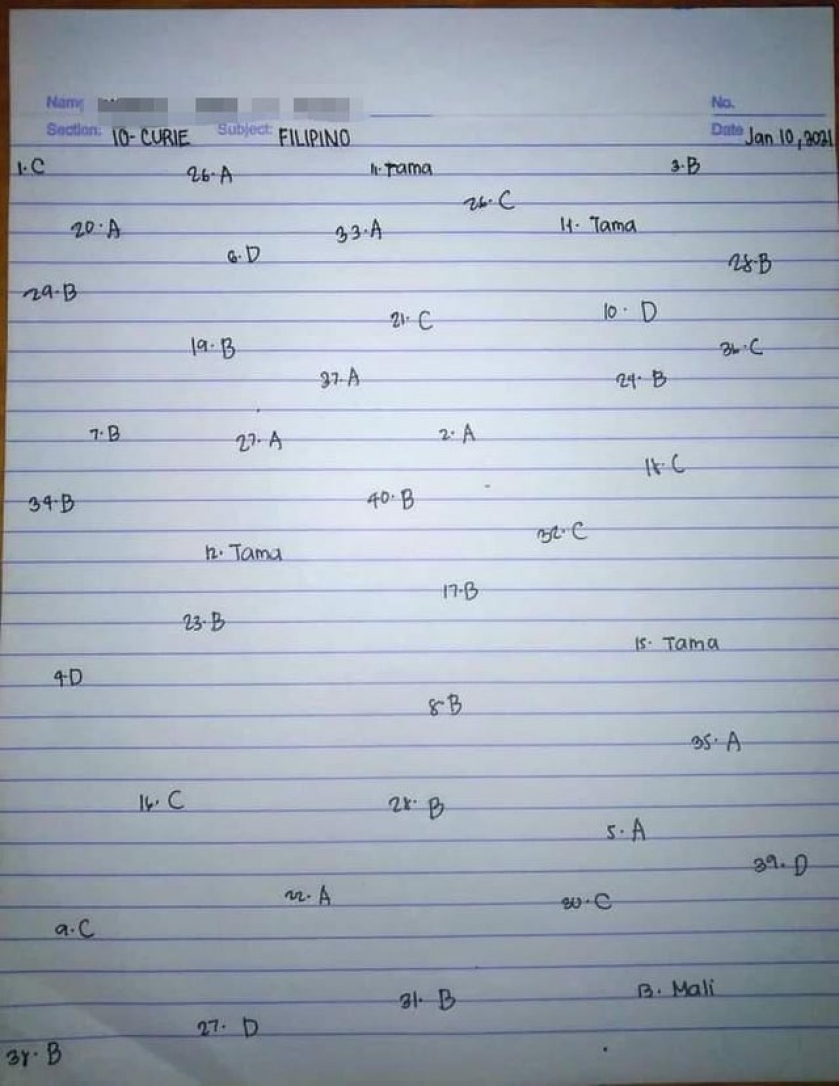 Name
No.
Section: 10- CURIE Subject: FILIPINO
Date Jan 10, 2021
1. C 26. A 11. Tama 3. B
26. C
20. A 33. A 14. Tama
6. D 28. B
29. B
21. C 10. D
19. B 36. C
37. A 24. B
7. B 27. A 2. A
18. C
34. B 40. B
32. C
12. Tama
17. B
23. B
15. Tama
4. D
8. B
35. A
16. C 28. B
5. A
39. D
22. A 30. C
9. C
31. B 13. Mali
27. D
38. B